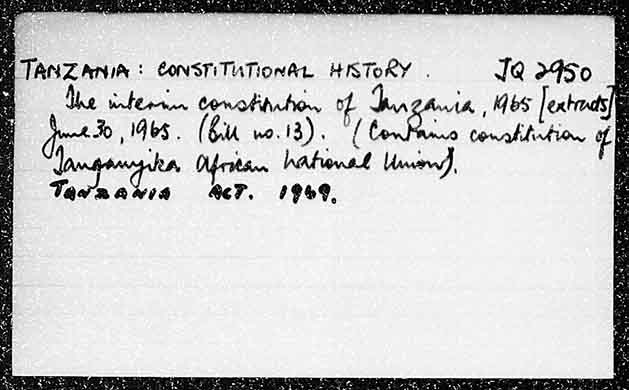 TANZANIA: CONSTITUTIONAL HISTORY. JQ 2950
The interim constitution of Tanzania, 1965 [extracts]
June 30, 1965. (Bill no. 13). (Contains constitution of
Tanganyika African National Union).
TANZANIA ACT. 1969.